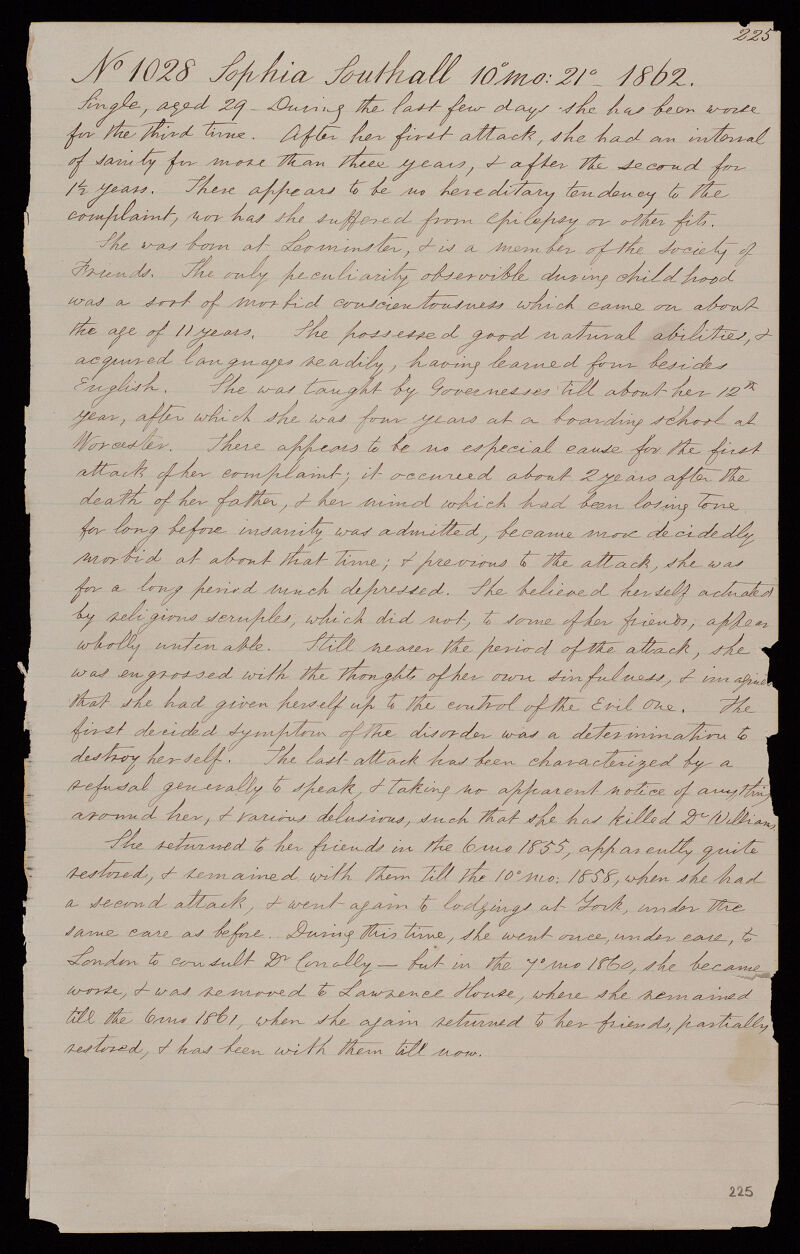 225
No 1028 Sophia Southall 10° mo: 21° 1862.
Single, aged 29 - During the last few days she has been worse
for the third time. After her first attack, she had an interval
of sanity for more than three years, & after the second for
1½ years. There appears to be no hereditary tendency to the
complaint, nor has she suffered from epilepsy or other fits.
She was born at Leominster, & is a member of the Society of
Friends. The only peculiarity observible during childhood
was a sort of morbid conscientousness which came on about
the age of 11 years. She possessed good natural abilities, &
acquired languages readily, having learned four besides
English. She was taught by Governesses till about her 12th
year, after which she was four years at a boarding school at
Worcester. There appears to be no especial cause for the first
attack of her complaint; it occurred about 2 years after the
death of her father, & her mind which had been losing tone
for long before insanity was admitted, became more decidedly
morbid at about that time; & previous to the attack, she was
for a long period much depressed. She believed herself actuated
by religious scruples, which did not, to some of her friends, appear
wholly untenable. Still nearer the period of the attack, she
was engrossed with the thoughts of her own sinfulness, & imagined
that she had given herself up to the control of the Evil One. The
first decided symptom of the disorder was a determination to
destroy herself. The last attack has been characterized by a
refusal generally to speak, & taking no apparent notice of anything
around her, & various delusions, such that she has killed Dr Williams
She returned to her friends in the 6mo 1855, apparently quite
restored, & remained with them till the 10° mo: 1858, when she had
a second attack, & went again to lodgings at York, under the
same care as before. During this time, she went once, under care, to
London to consult Dr Conolly — but in the 7° mo 1860, she became
worse, & was removed to Lawrence House, where she remained
till the 6mo 1861, when she again returned to her friends, partially
restored, & has been with them till now.
225